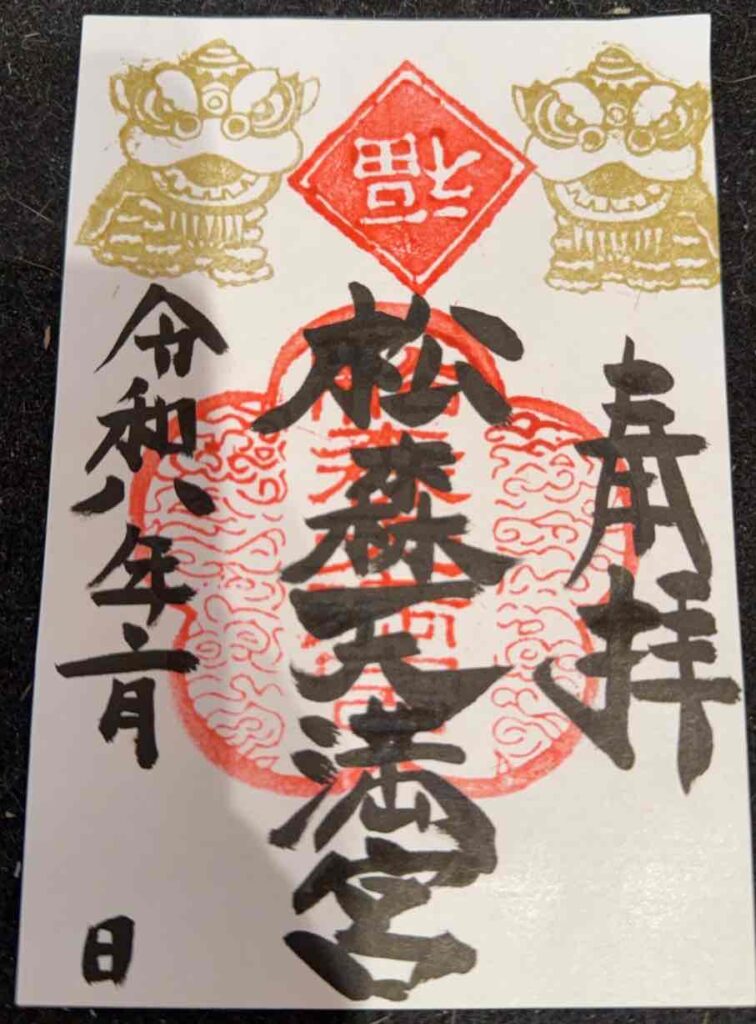 福
奉拝
松森天満宮
令和八年二月 日